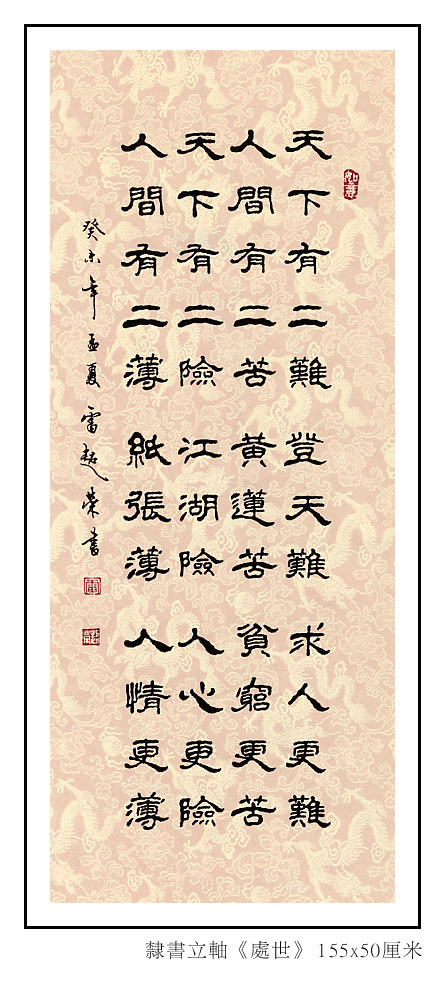 天下有二難登天難求人更難
人間有二苦黃蓮苦貧窮更苦
天下有二險江湖險人心更險
人間有二薄紙張薄人情更薄
癸未年孟夏雷超榮書
隸書立軸《處世》155x50厘米